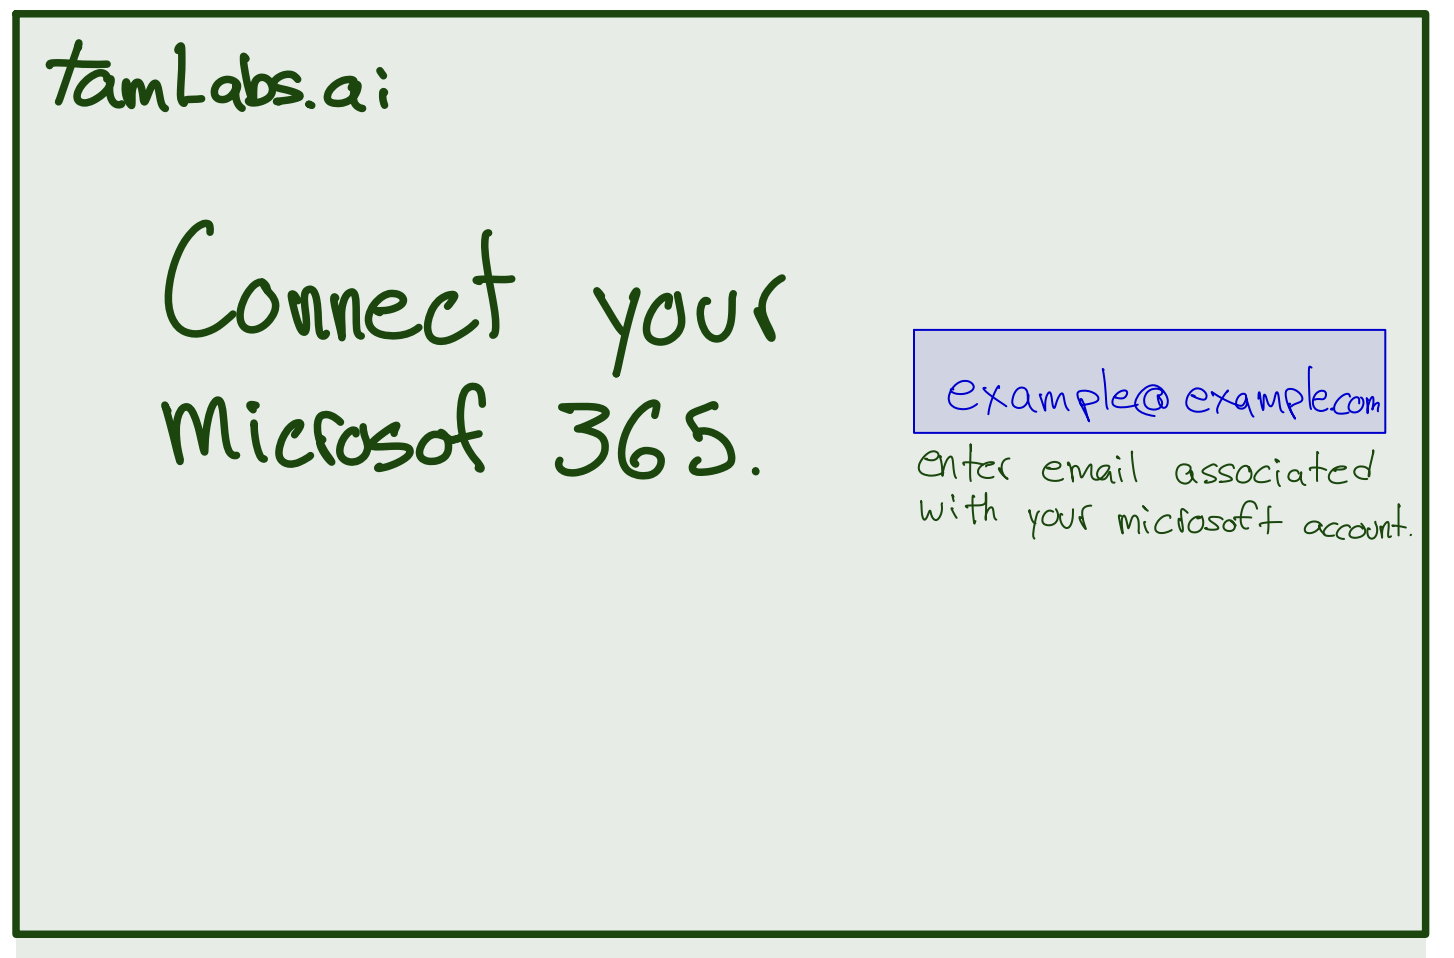 tamLabs.ai
Connect your
Microsof 365.
example@example.com
enter email associated
with your microsoft account.